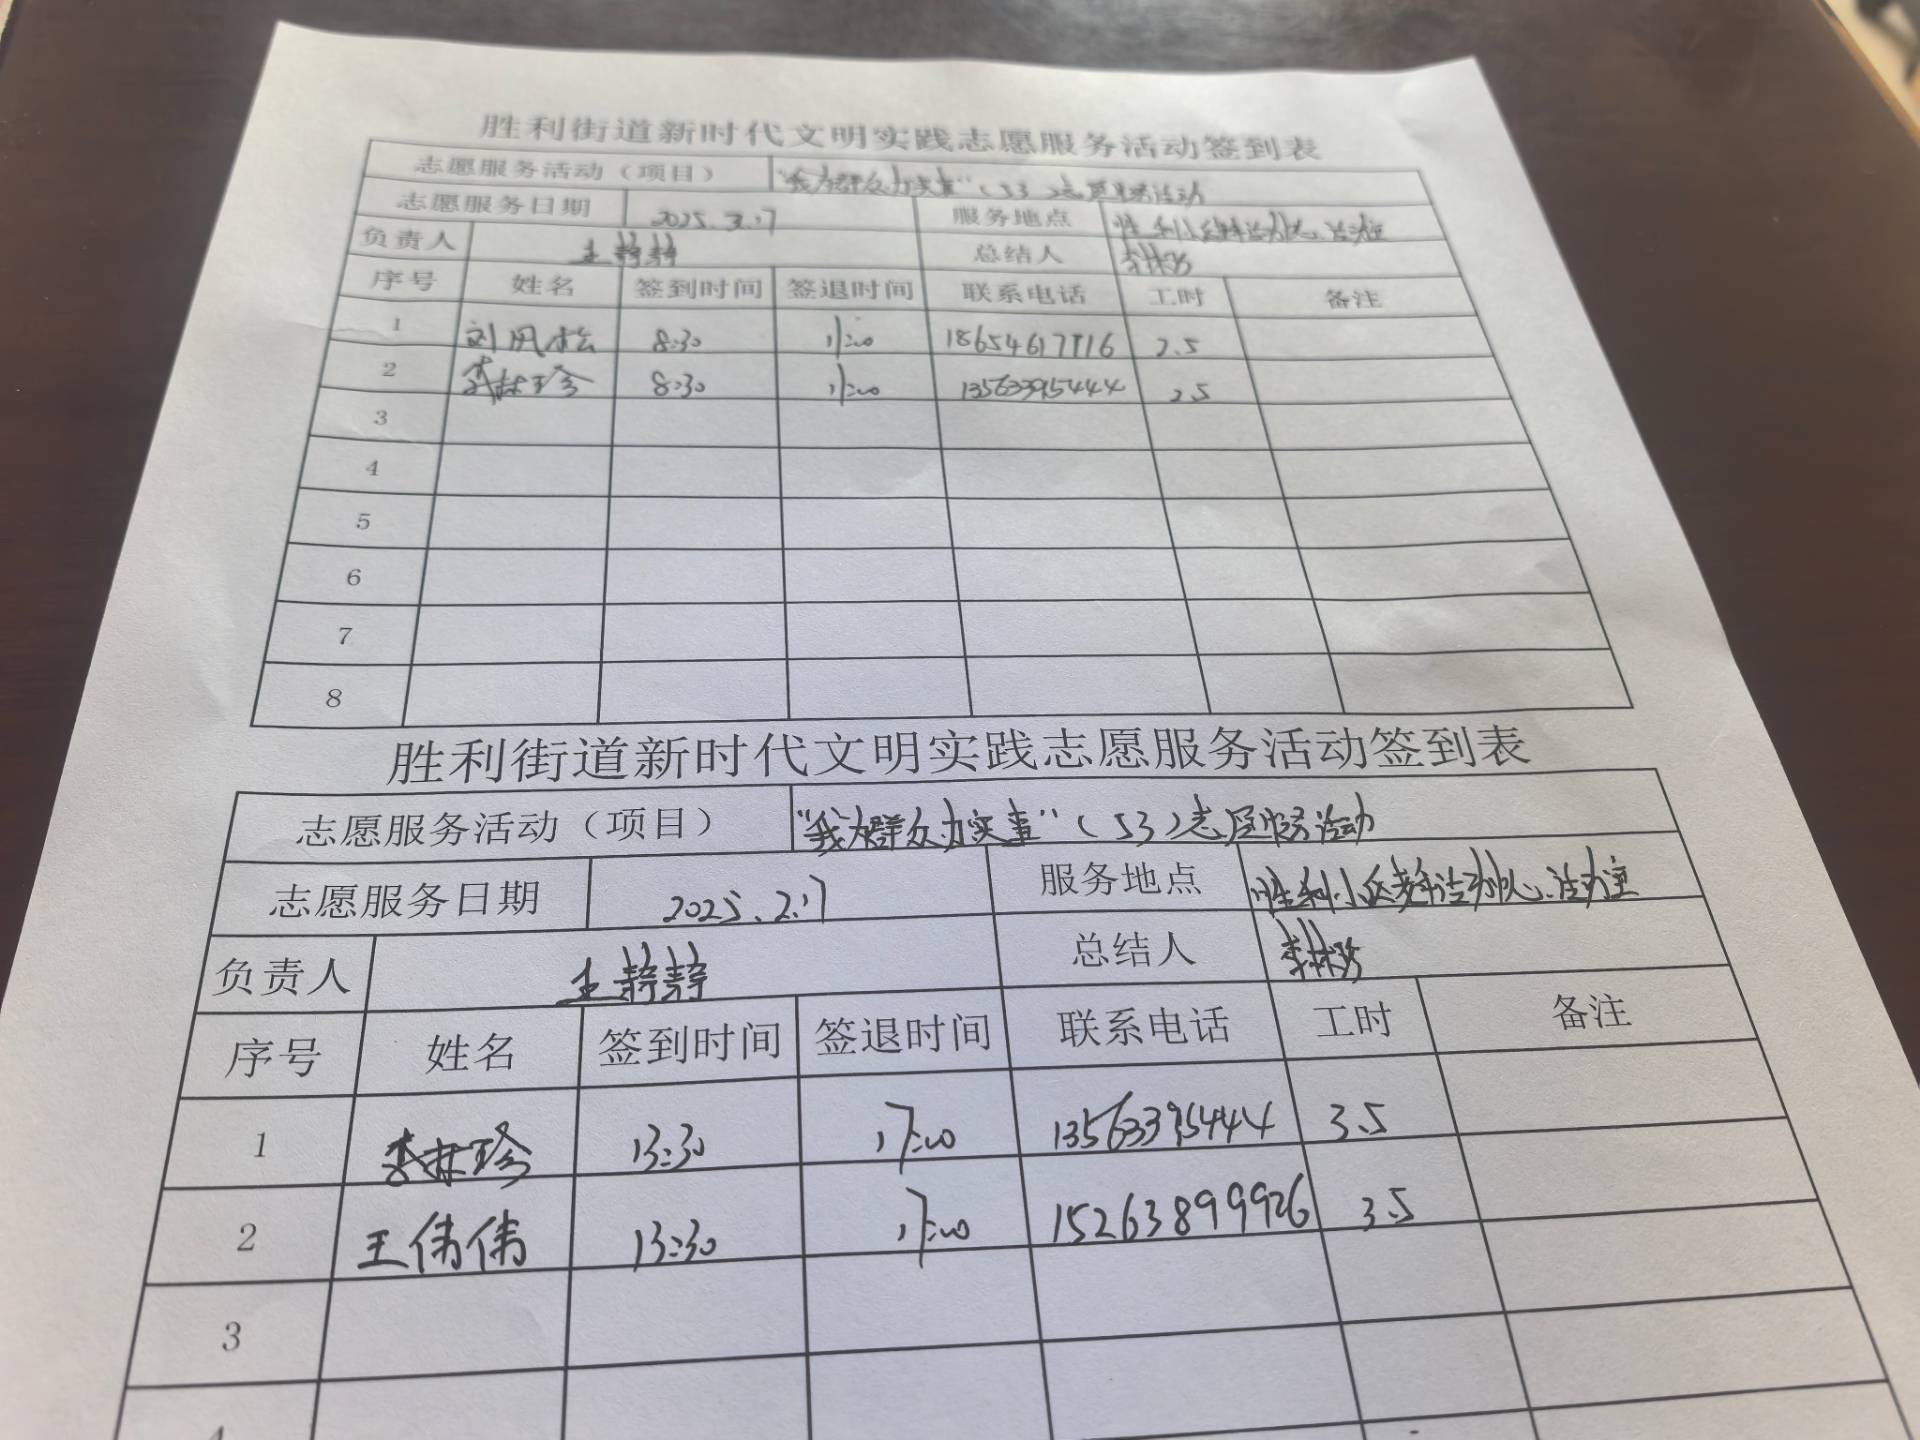 胜利街道新时代文明实践志愿服务活动签到表
志愿服务活动（项目） "我为群众办实事"（53）志愿服务活动
志愿服务日期 2025. 服务地点 胜利小区
负责人 王静静 总结人 李林珍
序号 姓名 签到时间 签退时间 联系电话 工时 备注
1 刘风松 8:30 11:00 2.5
2 李林珍 8:30 11:00 13563395444 2.5
3
4
5
6
7
8
胜利街道新时代文明实践志愿服务活动签到表
志愿服务活动（项目） "我为群众办实事"（53）志愿服务活动
志愿服务日期 2025.2.17 服务地点 胜利小区
负责人 王静静 总结人 李林珍
序号 姓名 签到时间 签退时间 联系电话 工时 备注
1 李林珍 13:30 17:00 13563395444 3.5
2 王伟伟 13:30 17:00 15263899926 3.5
3